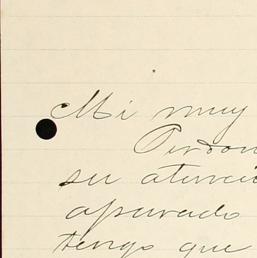 Mi muy
Perdon
su atenci
apurado
tengo que